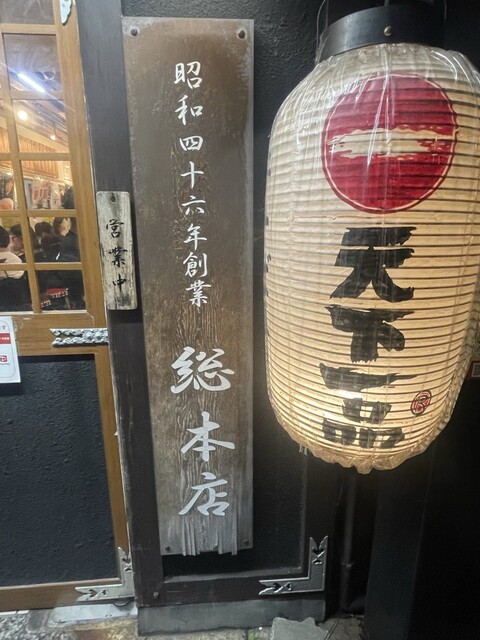 営業中
昭和四十六年創業
総本店
天下一品